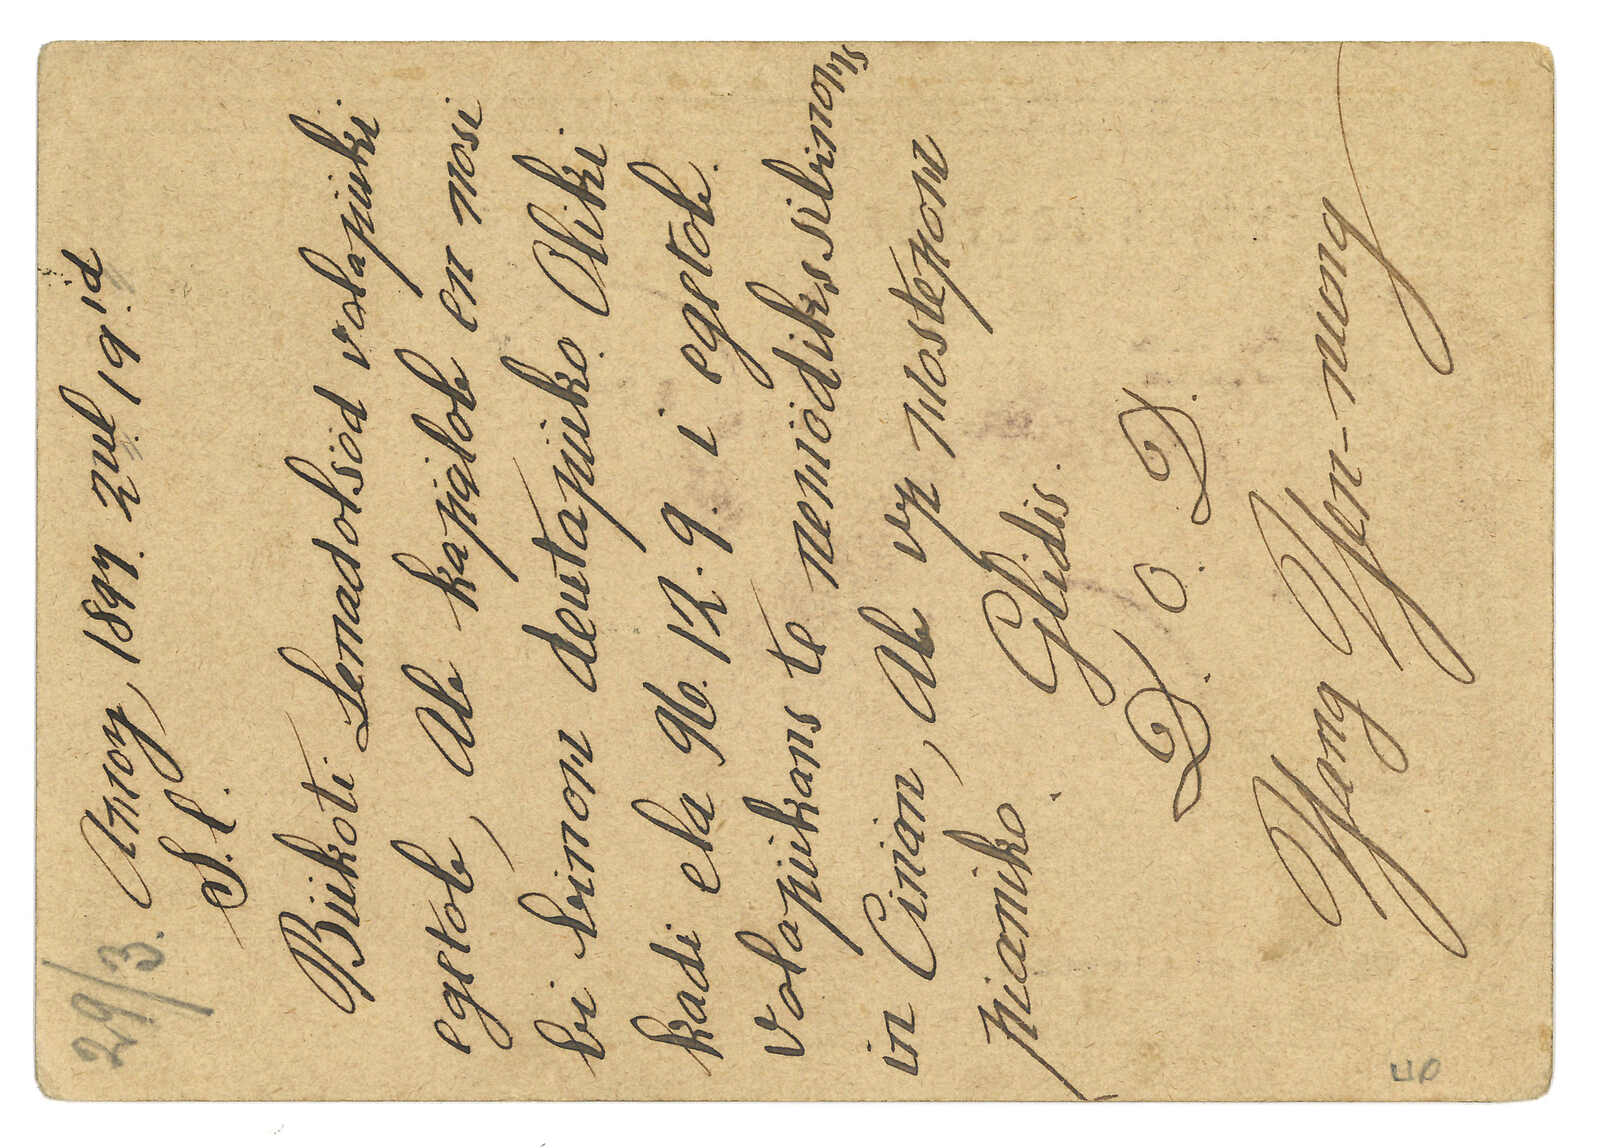 29/3.
Amoy, 1897 zul 19id
S. l.
Bükoti Lemadolsöd volapüki
egetob, Ab kapälob en nosi
bi binom deutapüko. Oliki
kadi ela 96. 12. 9. i egetob.
Volapükans te nemödiks sibinoms
in Cinän, Ab vp mostepom
pianiko. Glidis.
D. o. D.
Wang Yen-nung
UP